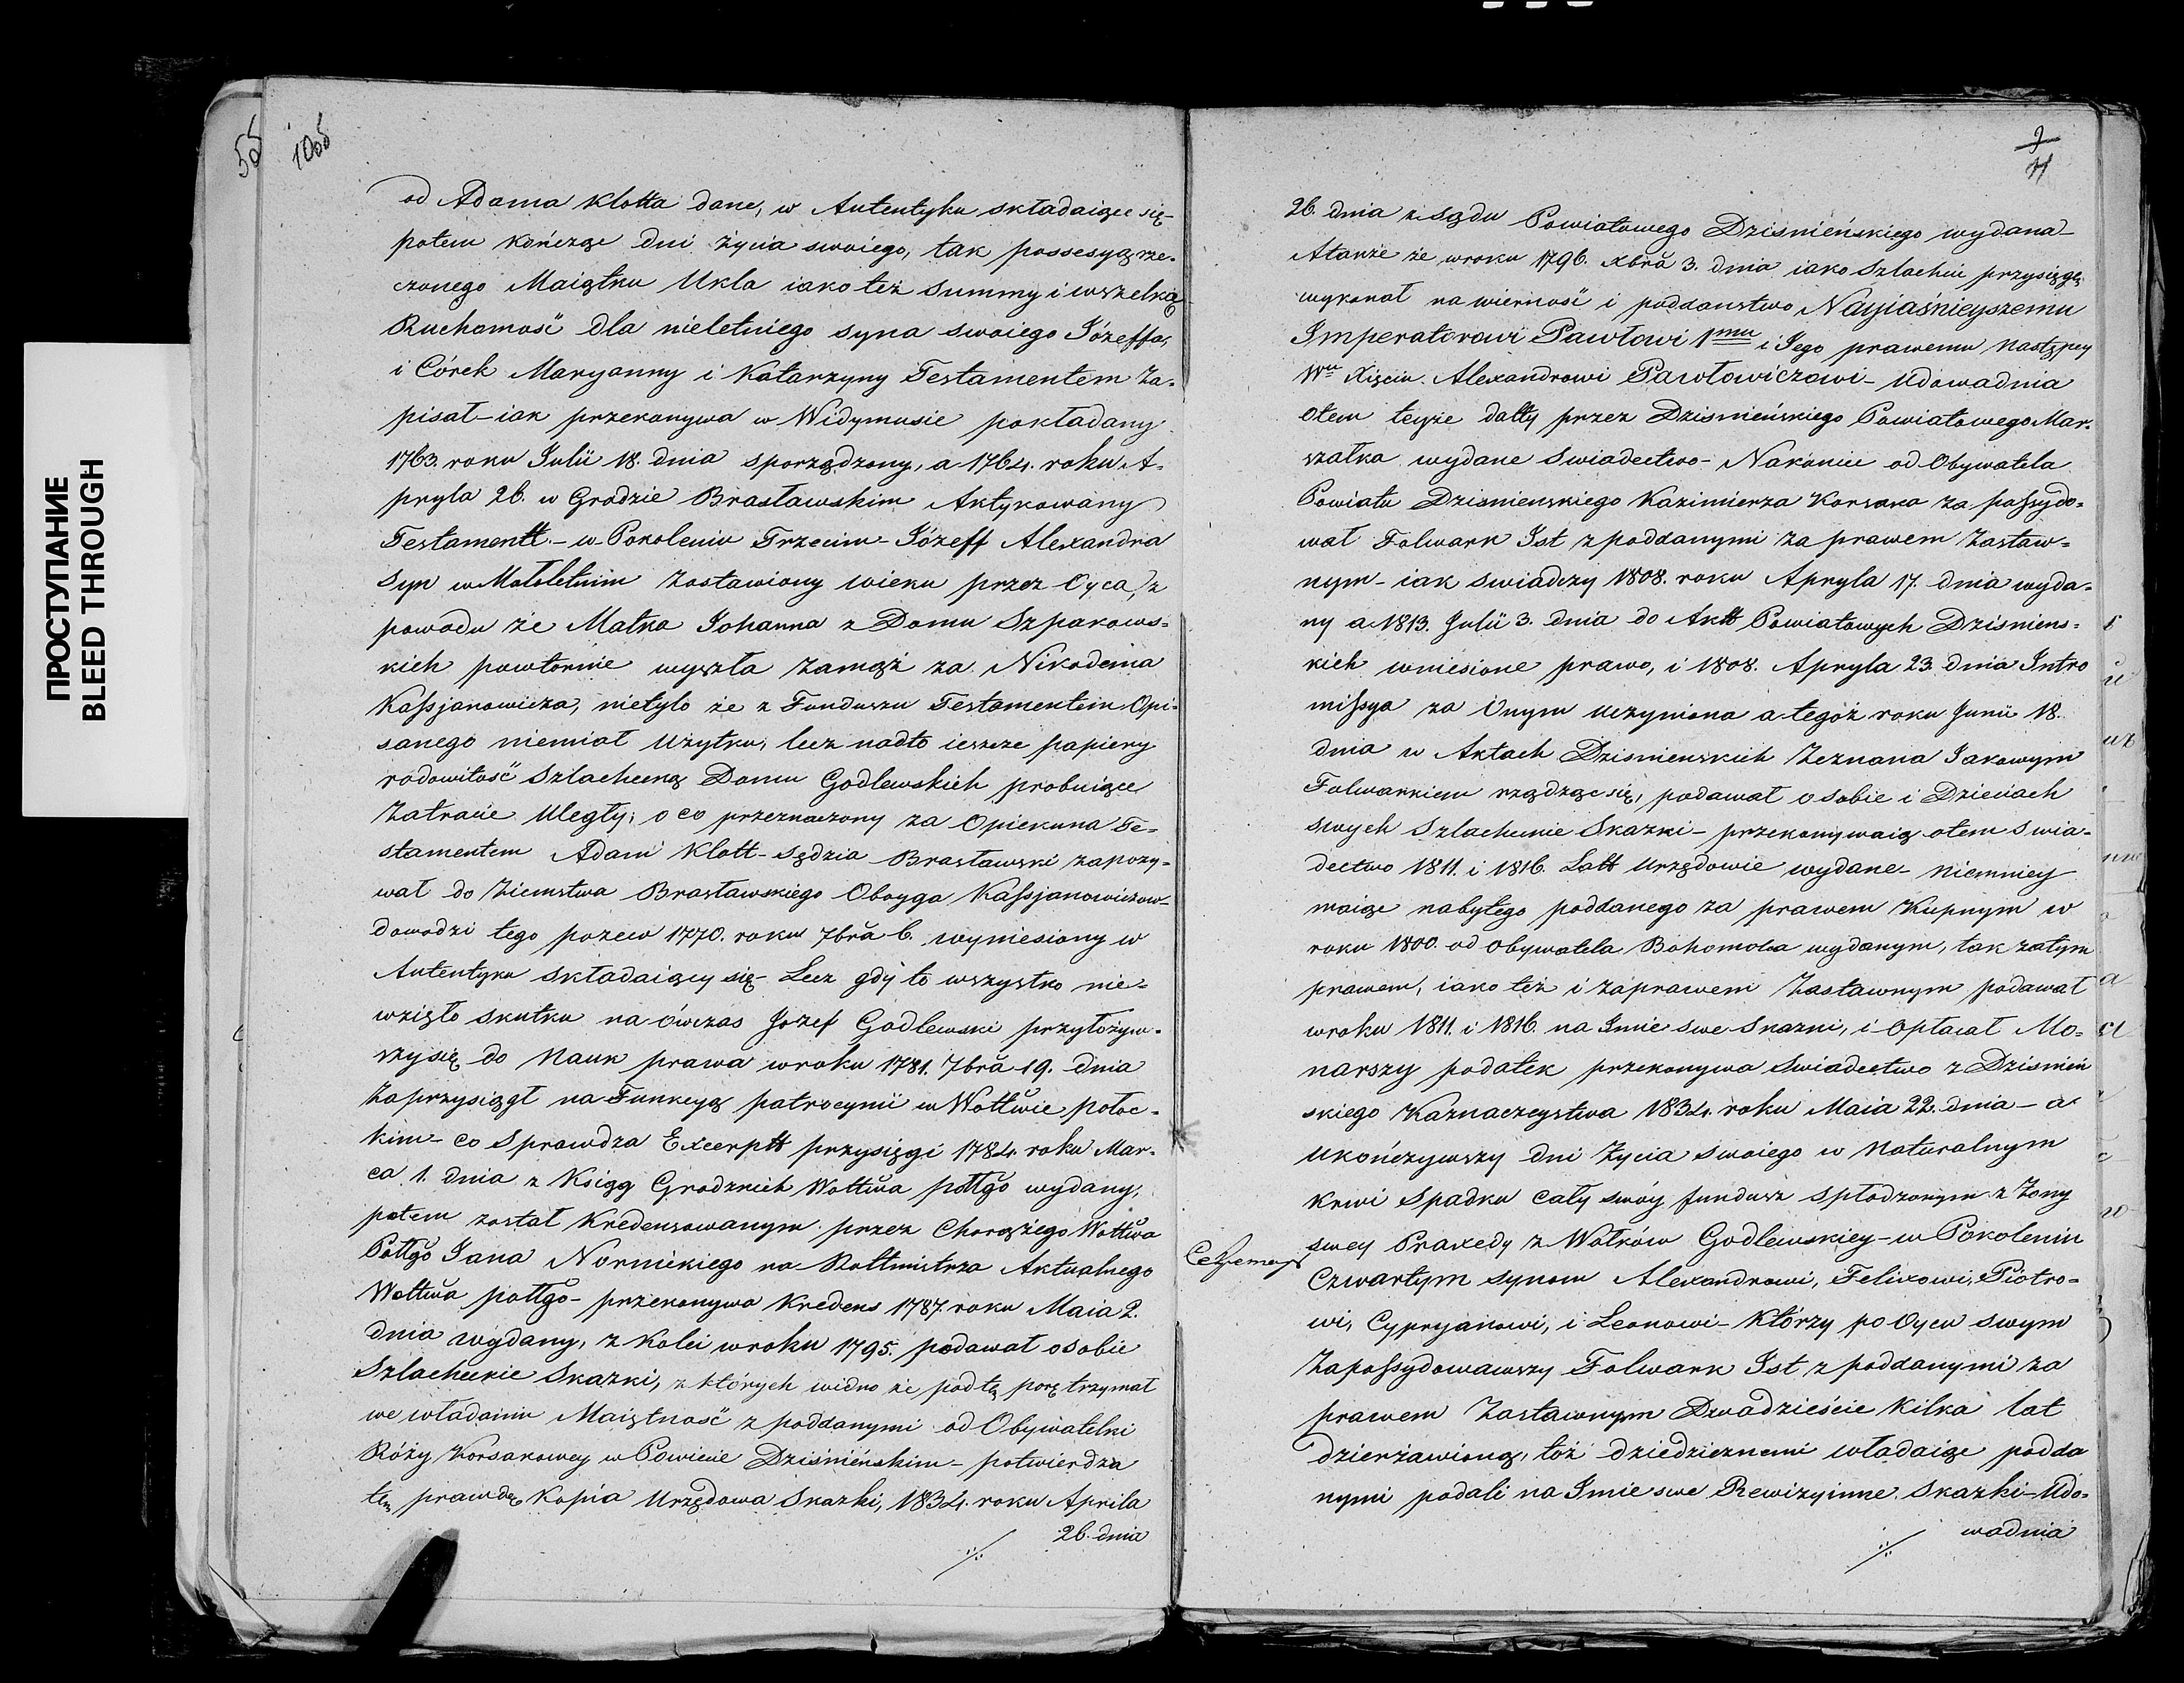 ПРОСТУПАНИЕ
BLEED THROUGH
10об
od Adama Klotta dane, w Autentyku składaiące się-
potem kończąc dni życia swoiego, tak possesyą rze-
czonego Maiątku Ukla iako też Summy i wszelką
Ruchomość dla nieletniego syna swoiego Józeffa,
i Córek Maryanny i Katarzyny Testamentem Za-
pisał - iak przekonywa w Widymusie pokładany
1763. roku Julii 18. dnia sporządzony, a 1764. roku A-
pryla 26. w Grodzie Brasławskim Aktykowany
Testamentt. - w Pokoleniu Trzecim - Józeff Alexandra
Syn w Małoletnim zostawiony wieku przez Oyca, z
powodu że Matka Johanna z Domu Szpakows=
kich powtórnie wyszła zamąż za Nikodema
Kassjanowicza, nietylo że z Funduszu Testamentem Opi-
sanego niemiał użytku, lecz nadto ieszcze papiery
rodowitość Szlachecką Domu Godlewskich probuiące
Zatracie Uległy; o co przeznaczony za Opiekuna Te=
stamentem Adam Klott - Sędzia Brasławski zapozy=
wał do Ziemstwa Brasławskiego Oboyga Kassjanowiczow-
dowodzi tego pozew 1770. roku 7bra 6. wyniesiony w
Autentyku składaiący się - Lecz gdy to wszystko nie=
wzięło skutku na ówczas Jozef Godlewski przyłożyw-
szy się do Nauk prawa w roku 1781. 7bra 19. dnia
Zaprzysiągł na Funkcyą patrocynii w Wottwie połoc-
kim - co Sprawdza Excerptt przysięgi 1784. roku Mar-
ca 1. dnia z Xiąg Grodzkich Wottwa połłgo wydany,
potem został Kredensowanym przez Chorążego Wottwa
Połłgo Jana Nornickiego na Rottmistrza Aktualnego
Wottwa połłgo - przekonywa Kredens 1787. roku Maia 2.
dnia wydany, z Kolei w roku 1795. podawał o Sobie
Szlacheckie Skazki, z których widno że pod tę porę trzymał
we władaniu Maiętność z poddanymi od Obywatelki
Róży Korsakowey w Powiecie Dziśnieńskim - potwierdza
tę prawdę Kopia Urzędowa Skazki, 1834. roku Aprila
26. dnia
9
11
26. dnia z Sądu Powiatowego Dzisnieńskiego wydana -
A tanże że w roku 1796. Xbra 3. dnia iako Szlachcic przysięgę
wykonał na wierność i poddaństwo Nayiaśnieyszemu
Imperatorowi Pawłowi 1mu i Jego prawemu Następcy
Wu Xięciu Alexandrowi Pawłowiczowi - Udowadnia
Otem teyże datty przez Dzisnieńskiego Powiatowego Mar-
szałka wydane Swiadectwo - Nakoniec od Obywatela
Powiatu Dzisnienskiego Kazimierza Korsaka Za possydo=
wał Folwark Ist z poddanymi za prawem Zastaw=
nym - iak swiadczy 1808. roku Apryla 17. dnia wyda-
ny a 1813. Julii 3. dnia do Aktt Powiatowych Dzisniens=
kich wniesione prawo, i 1808. Apryla 23. dnia Intro
missya za Onym uczyniona a tegóż roku Junii 18.
dnia w Aktach Dzisnienskich Zeznana Jakowym
Folwarkiem rządząc się, podawał o Sobie i Dzieciach
swych Szlacheckie Skazki - przekonywaią otem Swia-
dectwo 1811. i 1816. Latt Urzędowie wydane - Niemniey
maiąc nabytego poddanego za prawem Kupnym w
roku 1800. od Obywatela Bohomolca wydanym, tak za tym
prawem, iako też i za prawem Zastawnym podawał
w roku 1811. i 1816. na Imie swe Skazki, i Opłacał Mo=
narszy podatek przekonywa Swiadectwo z Dzisnień
skiego Kaznaczeystwa 1834. roku Maia 22. dnia - a
ukończywszy dni życia swoiego w Naturalnym
Krwi Spadku cały swóy fundusz Spłodzonym z Żony
swey Praxedy z Wołków Godlewskiey - w Pokoleniu
Czwartym synom Alexandrowi, Felixowi, Piotro=
wi, Cypryanowi, i Leonowi - Którzy po Oycu swym
Zapossydowawszy Folwark Ist z poddanymi za
prawem Zastawnym Dwadzieście Kilka lat
dzierżawioną, toż dziedzicznemi władaiąc podda
nymi podali na Imie swe Rewizyinne Skazki - Udo-
wadnia